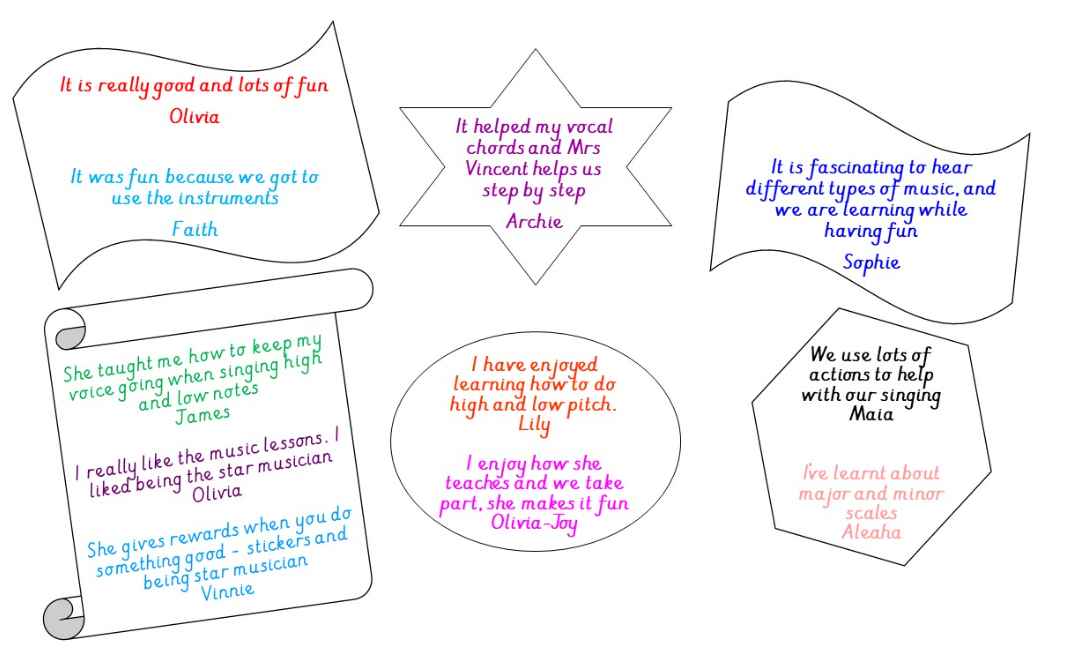 It is really good and lots of fun
Olivia
It was fun because we got to
use the instruments
Faith
It helped my vocal
chords and Mrs
Vincent helps us
step by step
Archie
It is fascinating to hear
different types of music, and
we are learning while
having fun
Sophie
She taught me how to keep my
voice going when singing high
and low notes
James
I really like the music lessons. I
liked being the star musician
Olivia
She gives rewards when you do
something good - stickers and
being star musician
Vinnie
I have enjoyed
learning how to do
high and low pitch.
Lily
I enjoy how she
teaches and we take
part, she makes it fun
Olivia-Joy
We use lots of
actions to help
with our singing
Maia
I've learnt about
major and minor
scales
Aleaha